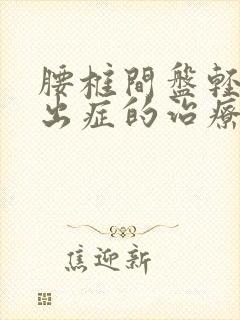 腰椎間盤軽
出症的治療
焦迎新